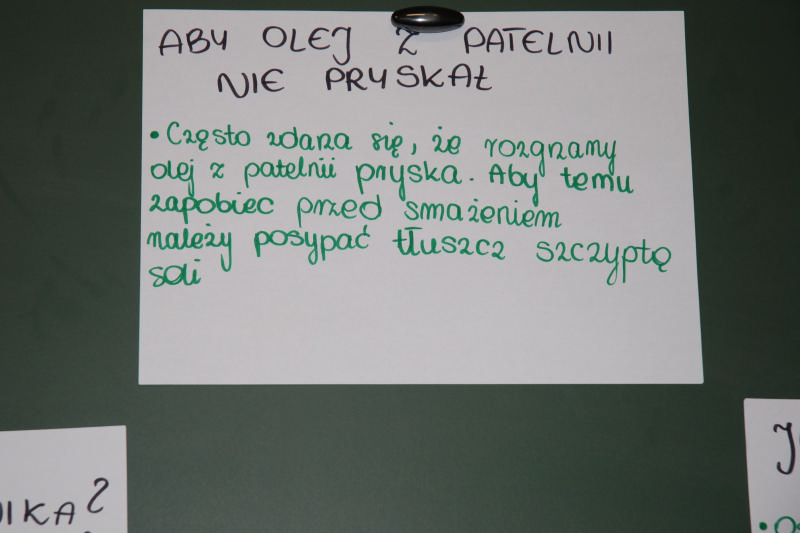 ABY OLEJ Z PATELNII
NIE PRYSKAŁ
• Często zdarza się, że rozgrzany
olej z patelnii pryska. Aby temu
zapobiec przed smażeniem
należy posypać tłuszcz szczyptą
soli